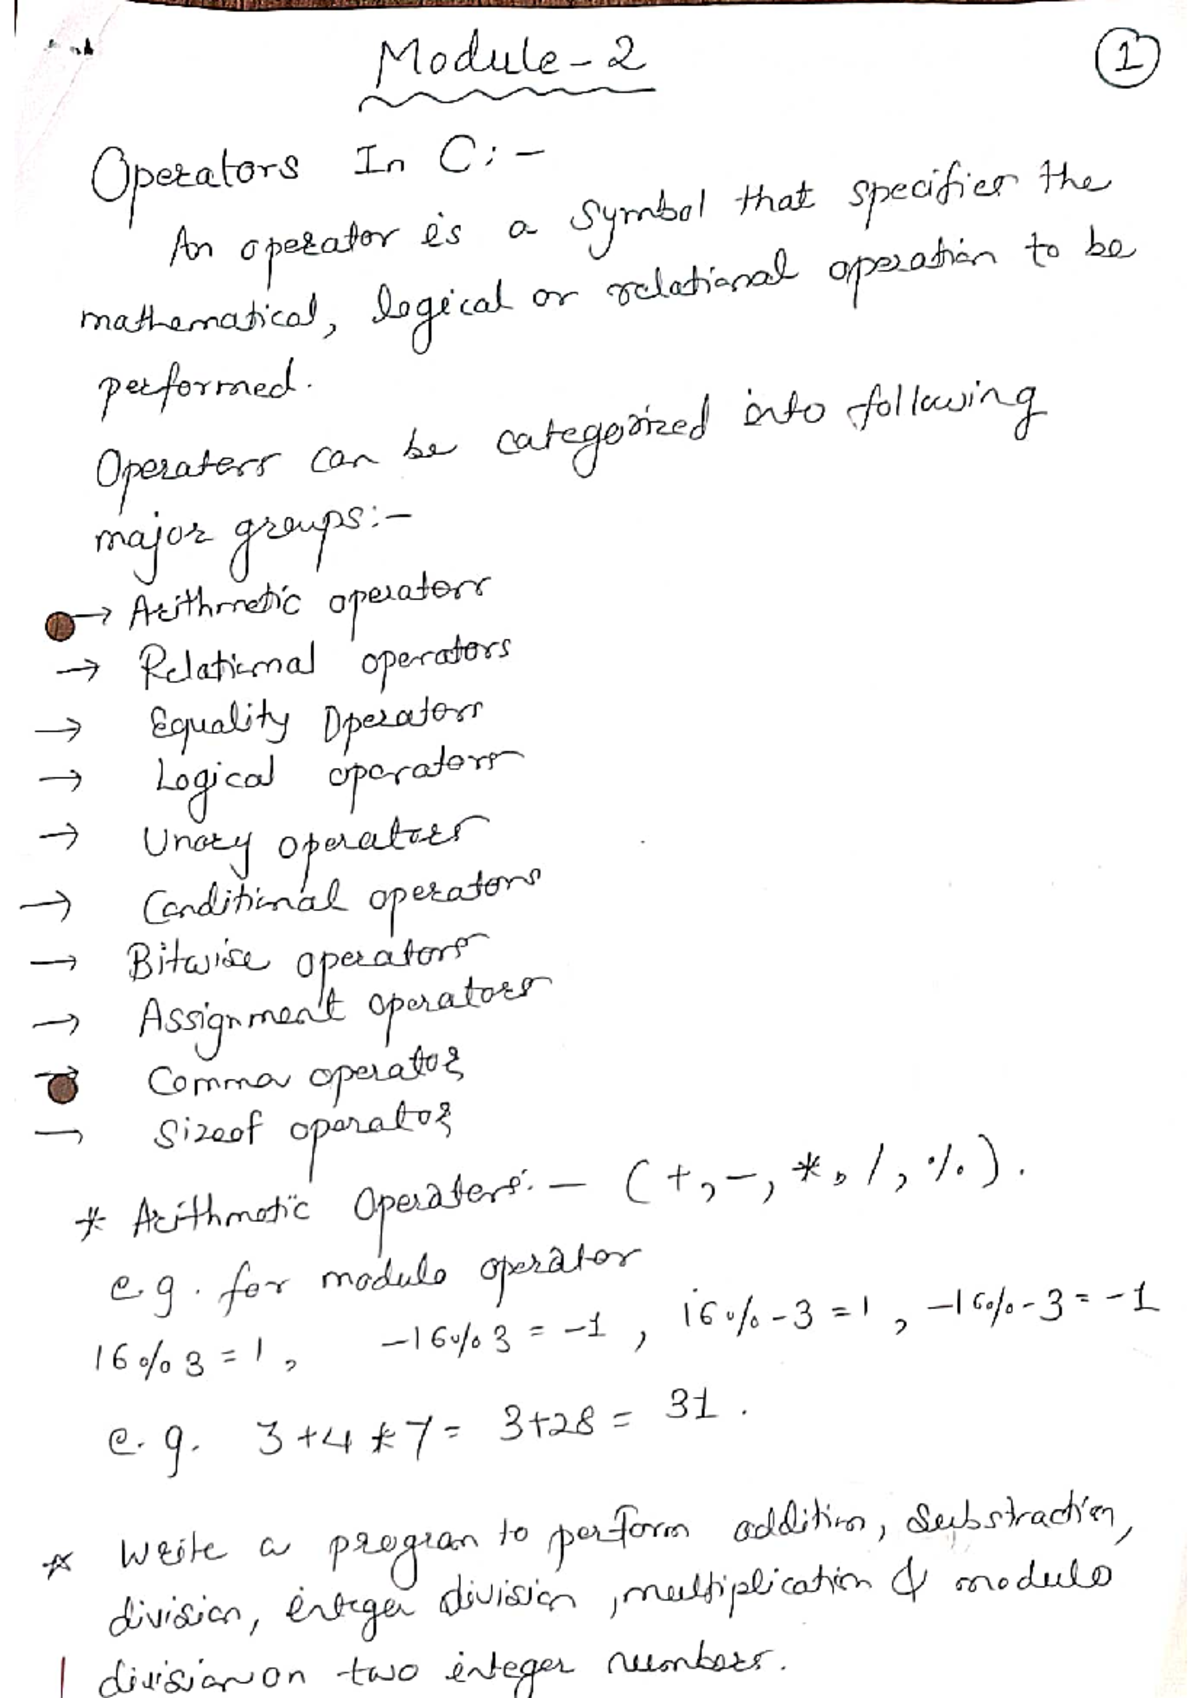 Module-2
1
Operators In C:-
An operator is a symbol that specifies the
mathematical, logical or relational operation to be
performed.
Operators can be categorized into following
major groups:-
→ Arithmetic operators
→ Relational operators
→ Equality Operators
→ Logical operators
→ Unary operators
→ Conditional operators
→ Bitwise operators
→ Assignment operators
→ Comma operator
→ Sizeof operator
* Arithmetic Operators:- (+,-,*,/,%).
e.g. for modulo operator
16%3=1, -16%3=-1, 16%-3=1, -16%-3=-1
e.g. 3+4*7= 3+28= 31.
* Write a program to perform addition, substraction,
division, integer division, multiplication & modulo
division on two integer numbers.